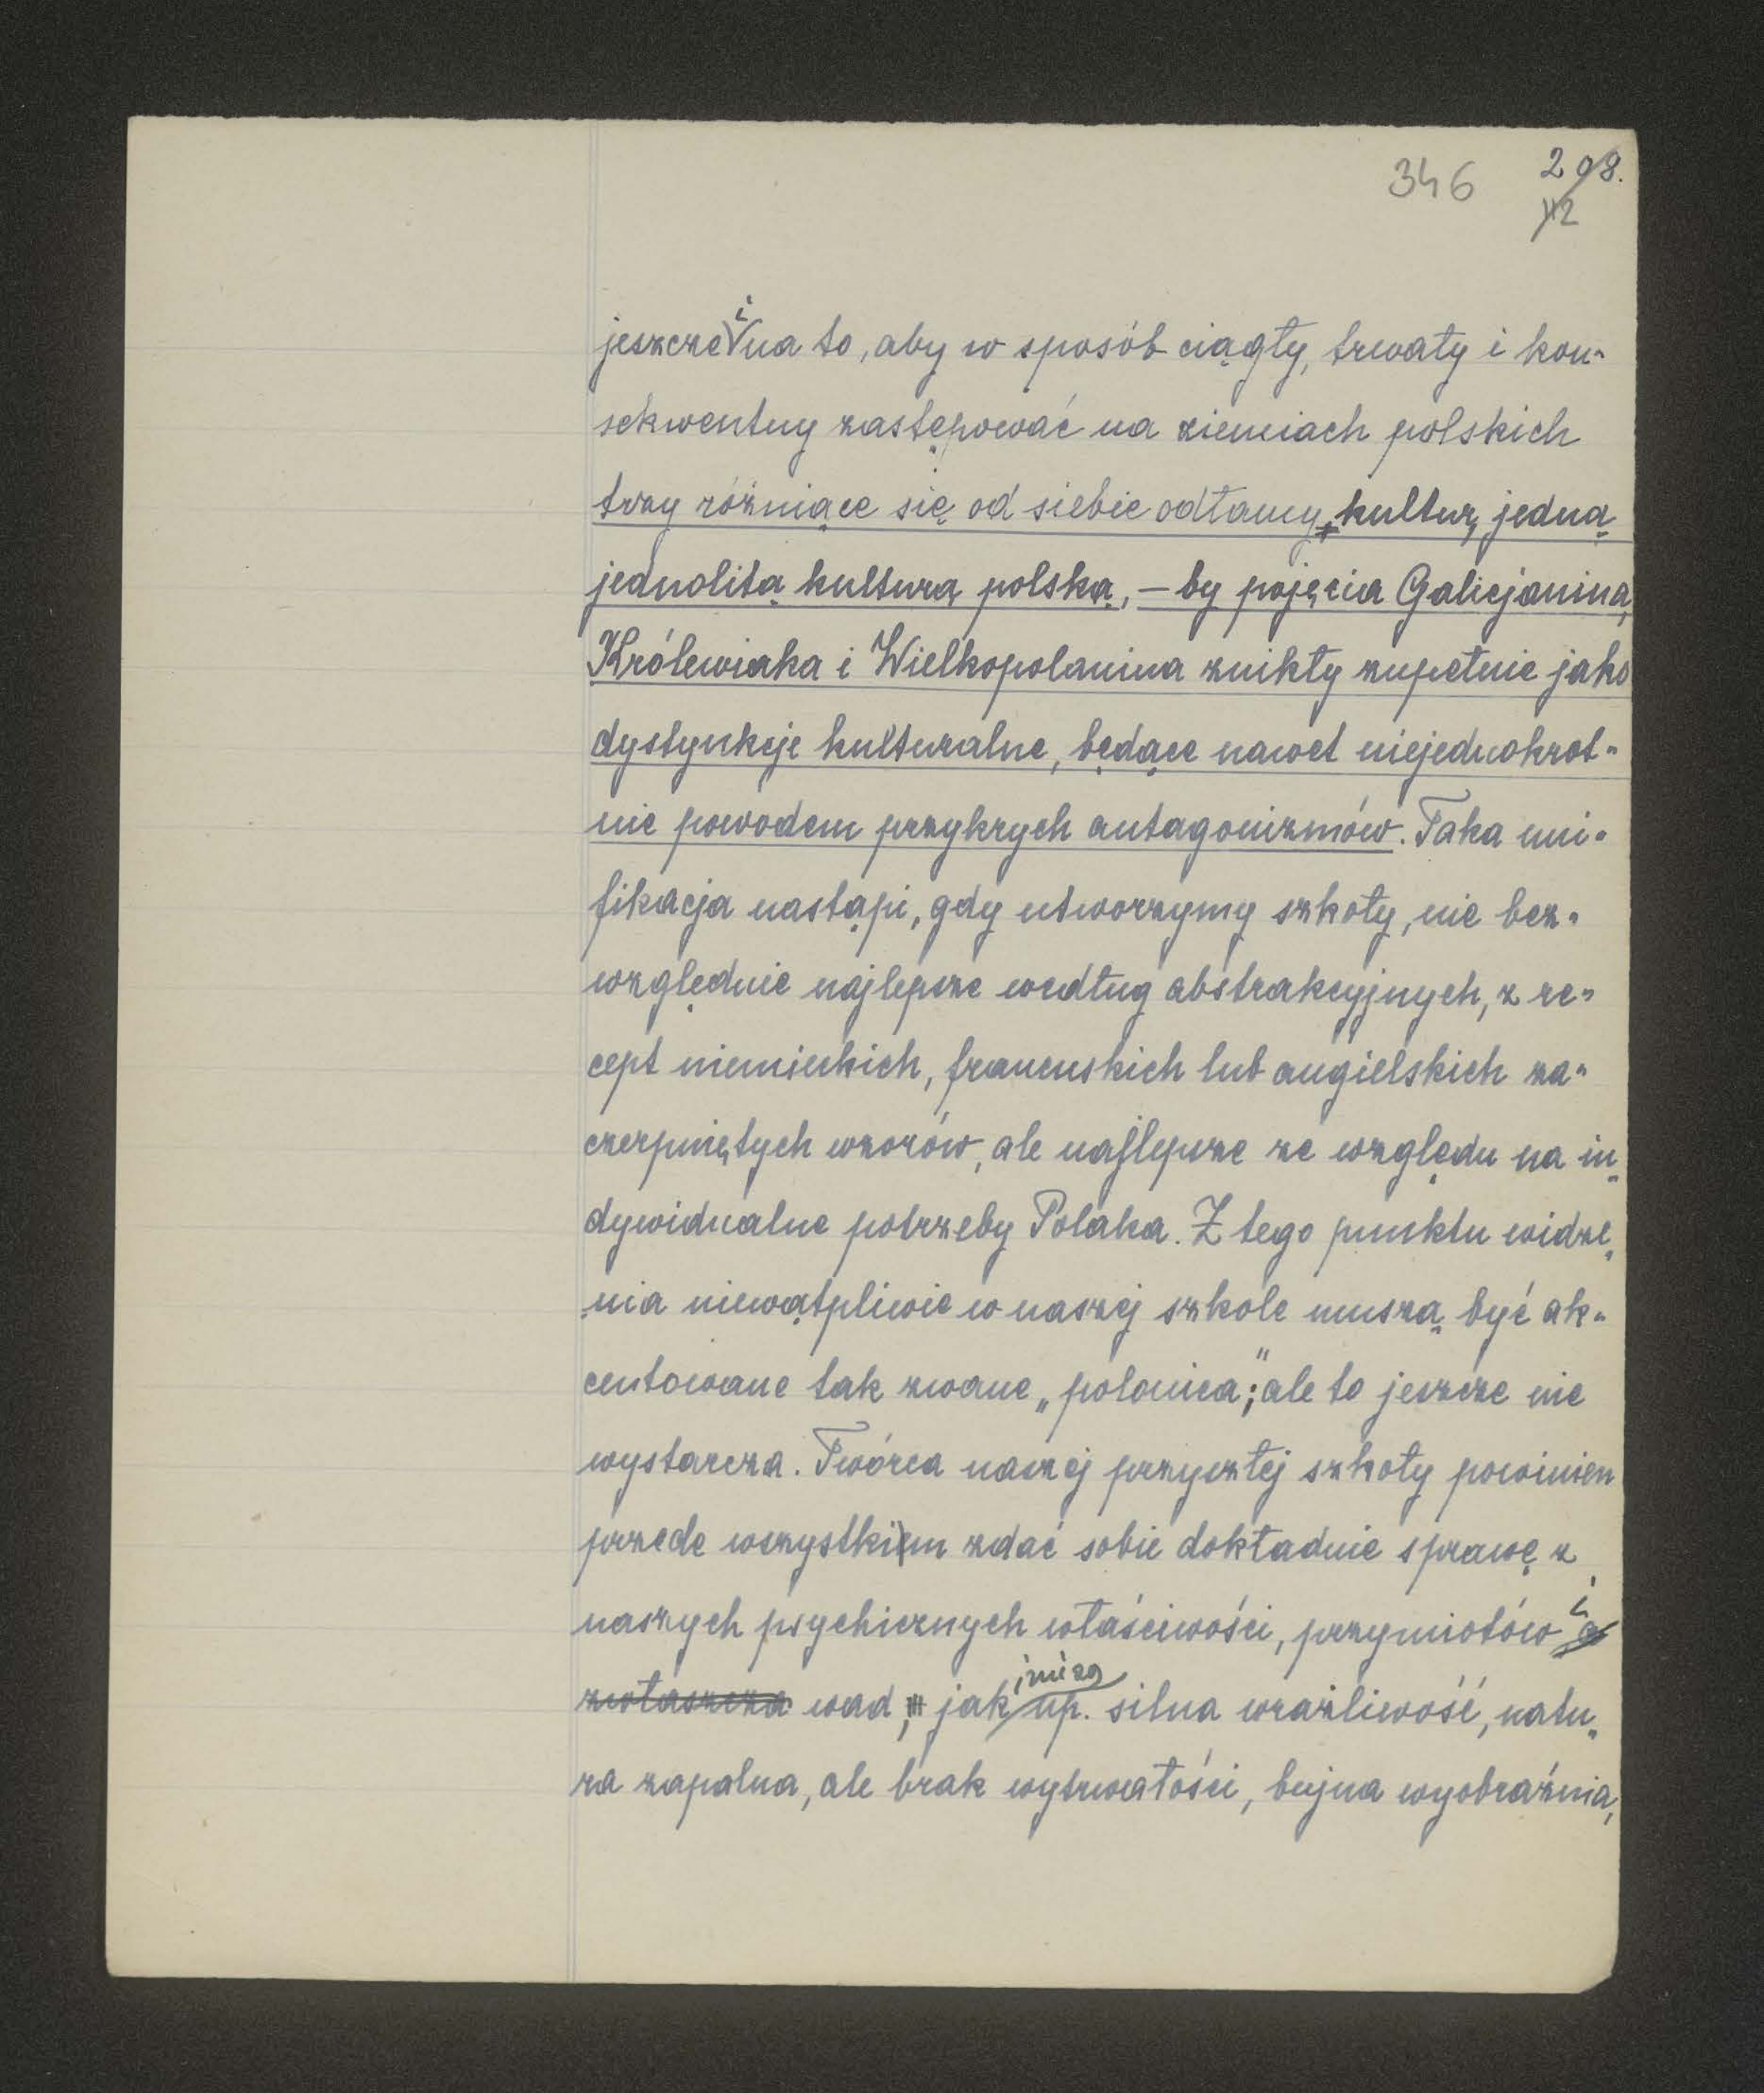 346 208.
112
jeszcze i na to, aby w sposób ciągły, trwały i kon-
sekwentny zastępować na ziemiach polskich
trzy różniące się od siebie odłamy kultur, jedną
jednolitą kulturą polską, — by pojęcia Galicjanina,
Królewiaka i Wielkopolanina znikły zupełnie jako
dystynkcje kulturalne, będące nawet niejednokrot-
nie powodem przykrych antagonizmów. Taka uni-
fikacja nastąpi, gdy utworzymy szkoły, nie bez-
względnie najlepsze według abstrakcyjnych, z re-
cept niemieckich, francuskich lub angielskich za-
czerpniętych wzorów, ale najlepsze ze względu na in-
dywidualne potrzeby Polaka. Z tego punktu widze-
nia niewątpliwie w naszej szkole muszą być ak-
centowane tak zwane „polonica”; ale to jeszcze nie
wystarcza. Twórca naszej przyszłej szkoły powinien
przede wszystkim zdać sobie dokładnie sprawę z
naszych psychicznych właściwości, przymiotów i a
zwłaszcza wad, jak np. silna wrażliwość, natu-
ra zapalna, ale brak wytrwałości, bujna wyobraźnia,